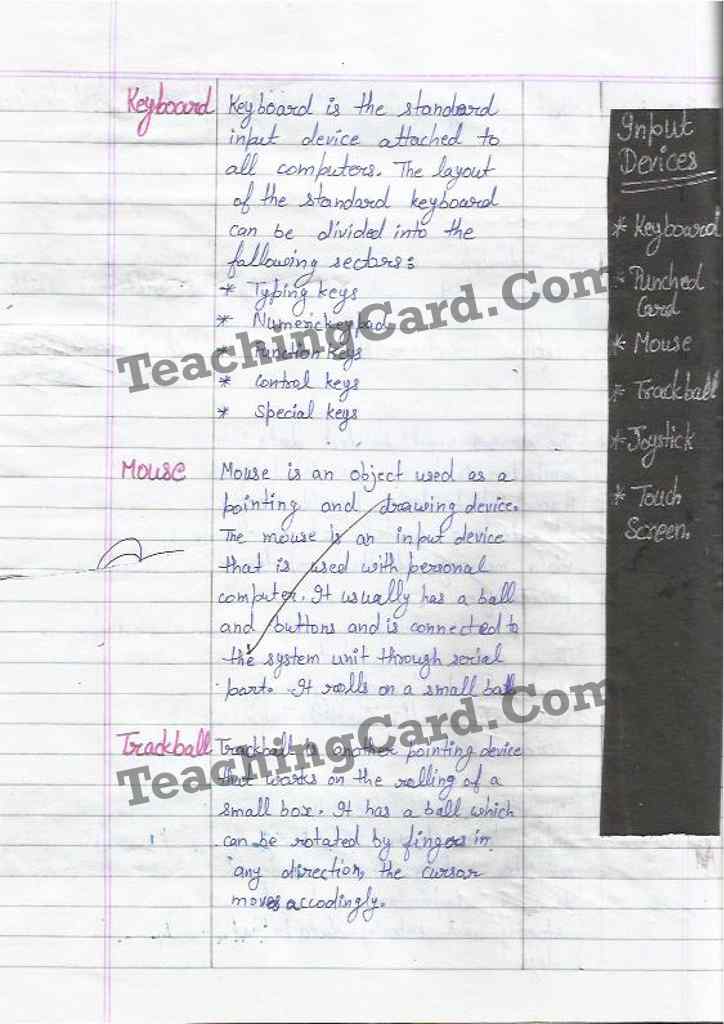 Keyboard
Keyboard is the standard
input device attached to
all computers. The layout
of the standard keyboard
can be divided into the
following sectors:
* Typing keys
* Numerickeypad
* Function keys
* Control keys
* Special keys
Mouse
Mouse is an object used as a
pointing and drawing device.
The mouse is an input device
that is used with personal
computer. It usually has a ball
and buttons and is connected to
the system unit through serial
port. It rolls on a small ball
Trackball
Trackball is another pointing device
that works on the rolling of a
small box. It has a ball which
can be rotated by fingers in
any direction, the cursor
moves accodingly.
Input
Devices
* Keyboard
* Punched
Card
* Mouse
* Trackball
* Joystick
* Touch
Screen.
TeachingCard.Com
TeachingCard.Com